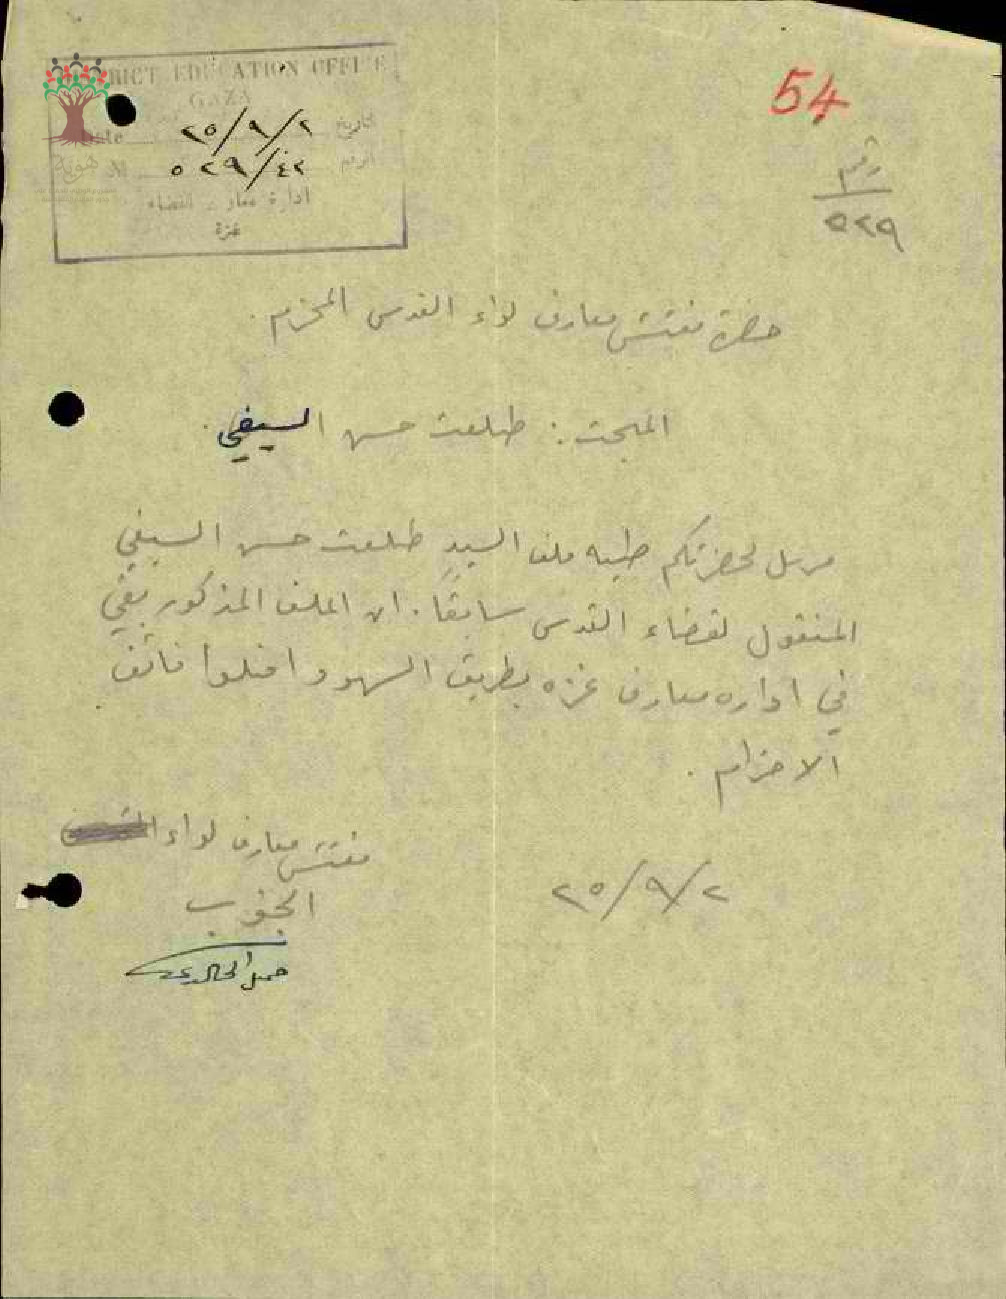 DISTRICT EDUCATION OFFICE
GAZA
Date تاريخ ٢٥/٩/٢
No الرقم ٥٢٩/٤٢
هوية
ادارة معارف القضاء
غزة
54
رقم
٥٢٩
حضرة مفتش معارف لواء القدس المحترم .
المبحث : طلعت حسن السيفي .
مرسل لحضرتكم طيه ملف السيد طلعت حسن السيفي
المنقول لقضاء القدس سابقاً . ان الملف المذكور بقي
في اداره معارف غزه بطريق السهو واقبلوا فائق
الاحترام .
مفتش معارف لواء
الجنوب
٢٥/٩/٢
جميل الخالدي